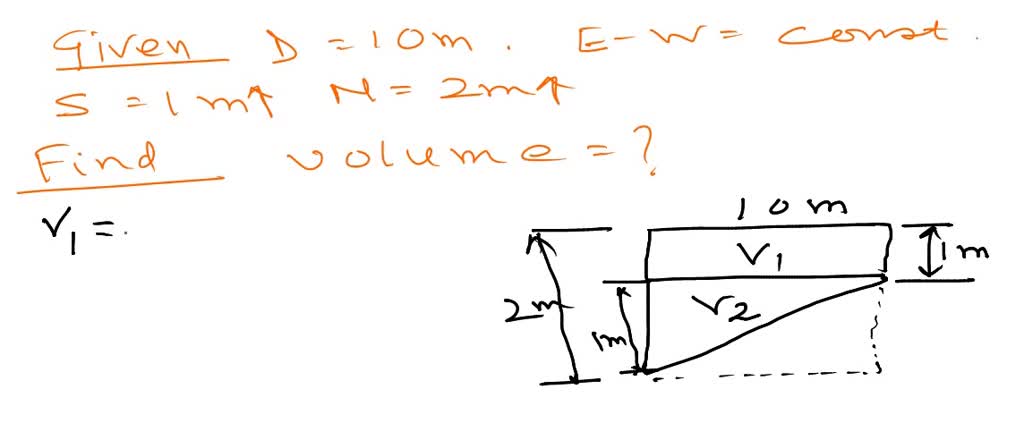 Given D = 10m. E-W = const.
S = 1m↑ N = 2m↑
Find volume = ?
V₁ =
10m
V₁
1m
2m
V2
1m